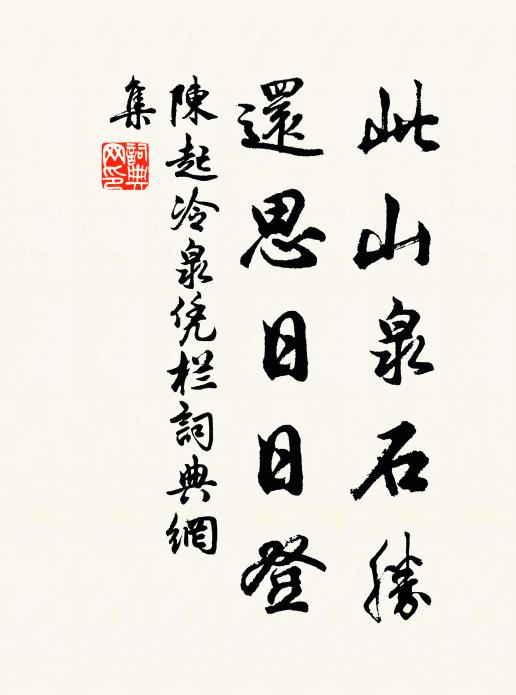 此山泉石勝
還思日日登
陳起冷泉凭栏詞典網
集
詞典
网印